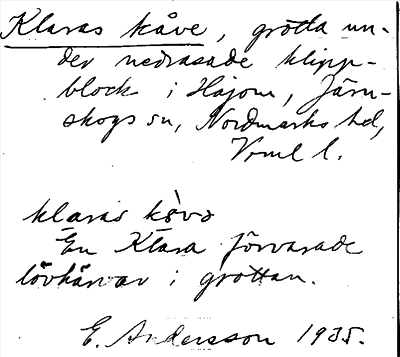 Klaras kåve, grotta un-
der nedrasade klipp-
block i Håjom, Järn-
skogs sn, Nordmarks hd,
Vrml l.
klaras kòvə
En Klara förvarade
lövkärvar i grottan.
E. Andersson 1935.